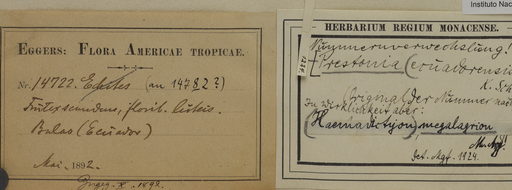 Instituto Nac
EGGERS: FLORA AMERICAE TROPICAE.
Nr. 14722. Echites (an 14782?)
Frutex scandens, florib. luteis.
Balao (Ecuador)
Mai. 1892.
HERBARIUM REGIUM MONACENSE.
Nummernverwechslung!
[Prestonia (ecuadorensis
(der Nummer nach
In Wirklichkeit aber:
(Haemadictyon) megalagrion
Det. Mgf. 1924.